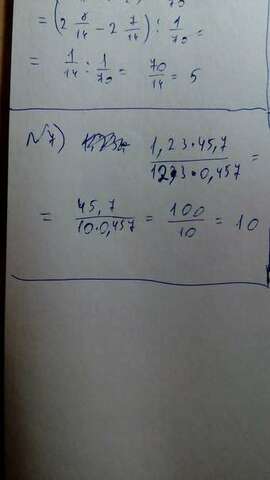 = (2 8/14 - 2 7/14) : 1/70 =
= 1/14 : 1/70 = 70/14 = 5
N7) 1,23·45,7 / 12,3·0,457 =
= 45,7 / 10·0,457 = 100/10 = 10